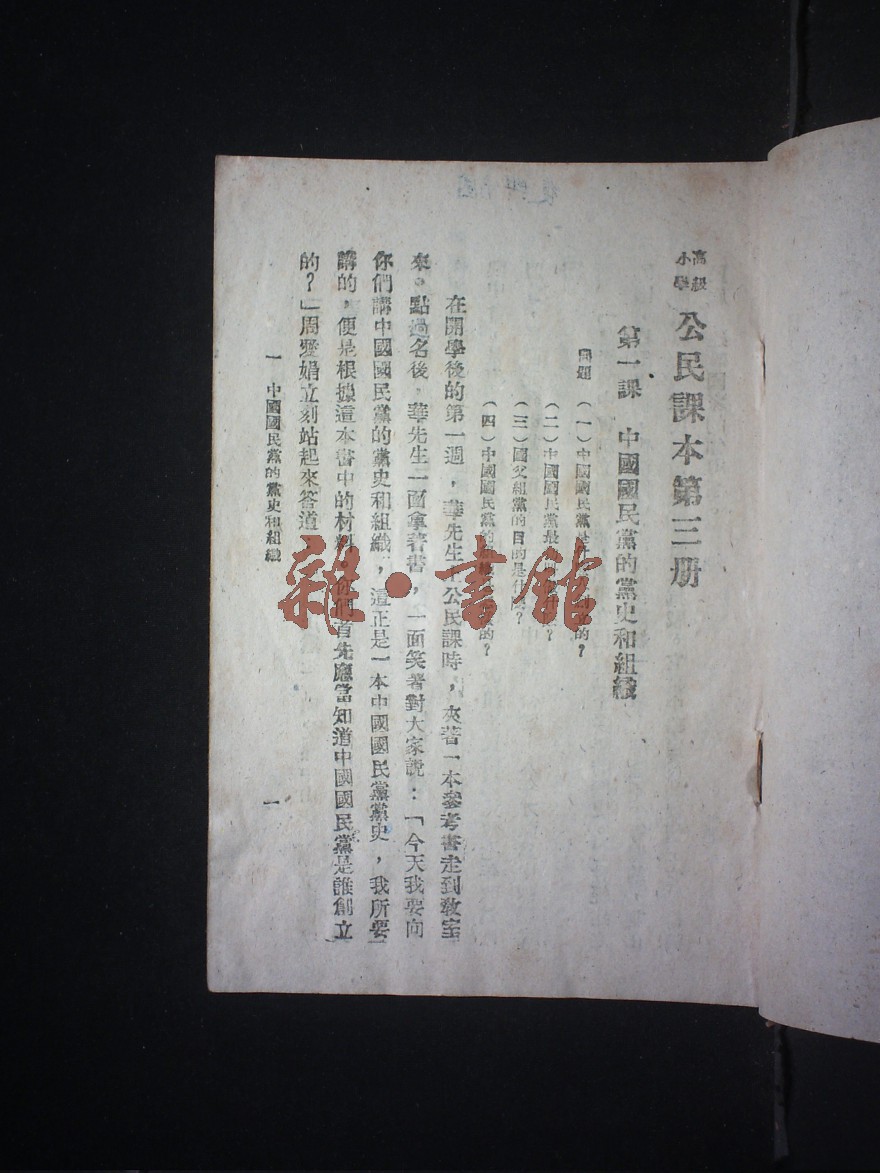 高級小學 公民課本第三册
第一課 中國國民黨的黨史和組織
問題 (一)中國國民黨是的?
(二)中國國民黨最?
(三)國父組黨的目的是什麼?
(四)中國國民黨的的?
在開學後的第一週,華先生上公民課時,夾著一本參考書走到敎室
來。點過名後,華先生一面拿著書,一面笑著對大家說:「今天我要向
你們講中國國民黨的黨史和組織,這正是一本中國國民黨黨史,我所要
講的,便是根據這本書中的材料。你們首先應當知道中國國民黨是誰創立
的?」周愛娟立刻站起來答道:
一 中國國民黨的黨史和組織
一
雜·書館